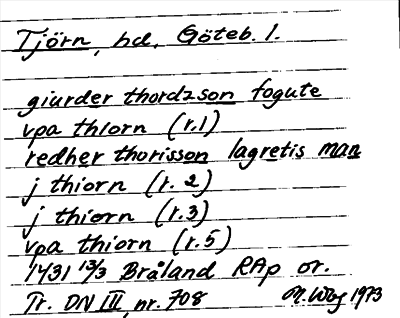 Tjörn, hd, Göteb. l.
giurder thordzson fogute
vpa thiorn (r.1)
redher thorisson lagretis man
j thiorn (r. 2)
j thiorn (r.3)
vpa thiorn (r.5)
1431 13/3 Bråland RAp or.
Tr. DN III, nr. 708 1973